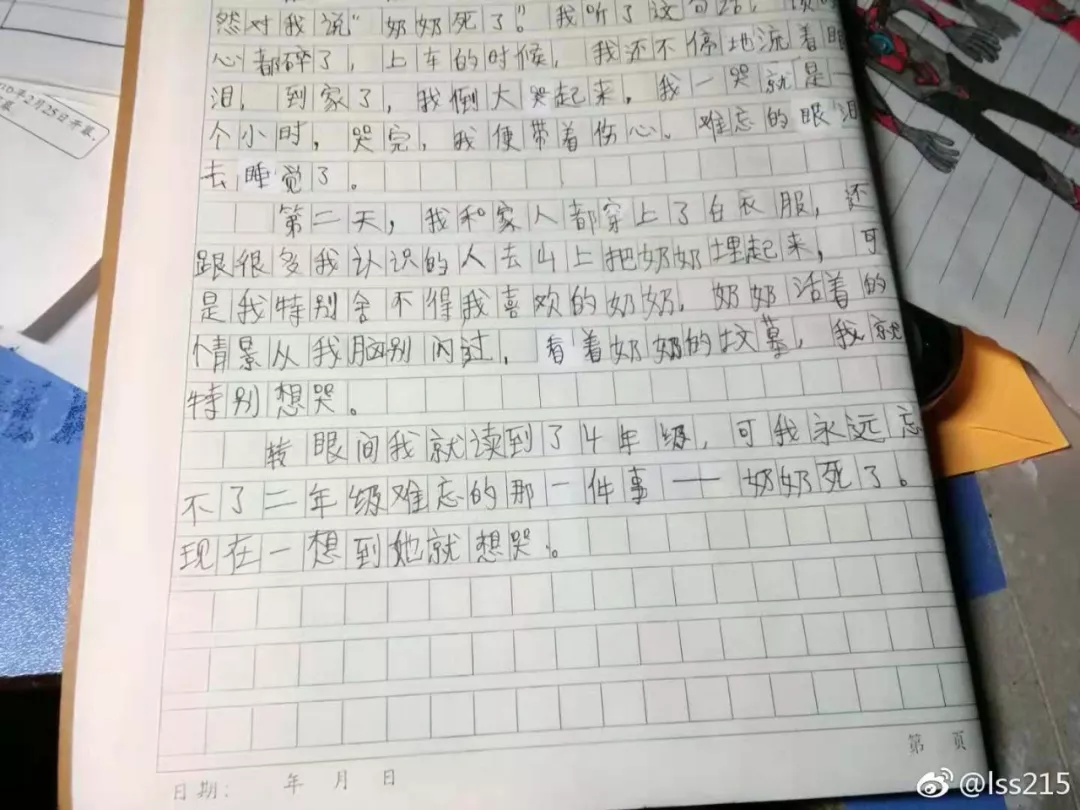 然对我说“奶奶死了。”我听了这句话，
心都碎了，上车的时候，我还不停地流着眼
泪，到家了，我倒大哭起来，我一哭就是一
个小时，哭完，我便带着伤心。难忘的眼泪
去睡觉了。
第二天，我和家人都穿上了白衣服，还
跟很多我认识的人去山上把奶奶埋起来，可
是我特别舍不得我喜欢的奶奶，奶奶活着的
情景从我脑别闪过，看着奶奶的坟墓，我就
特别想哭。
转眼间我就读到了4年级，可我永远忘
不了二年级难忘的那一件事——奶奶死了。
现在一想到她就想哭。
第 页
日期： 年 月 日
年2月25日开幕
@lss215